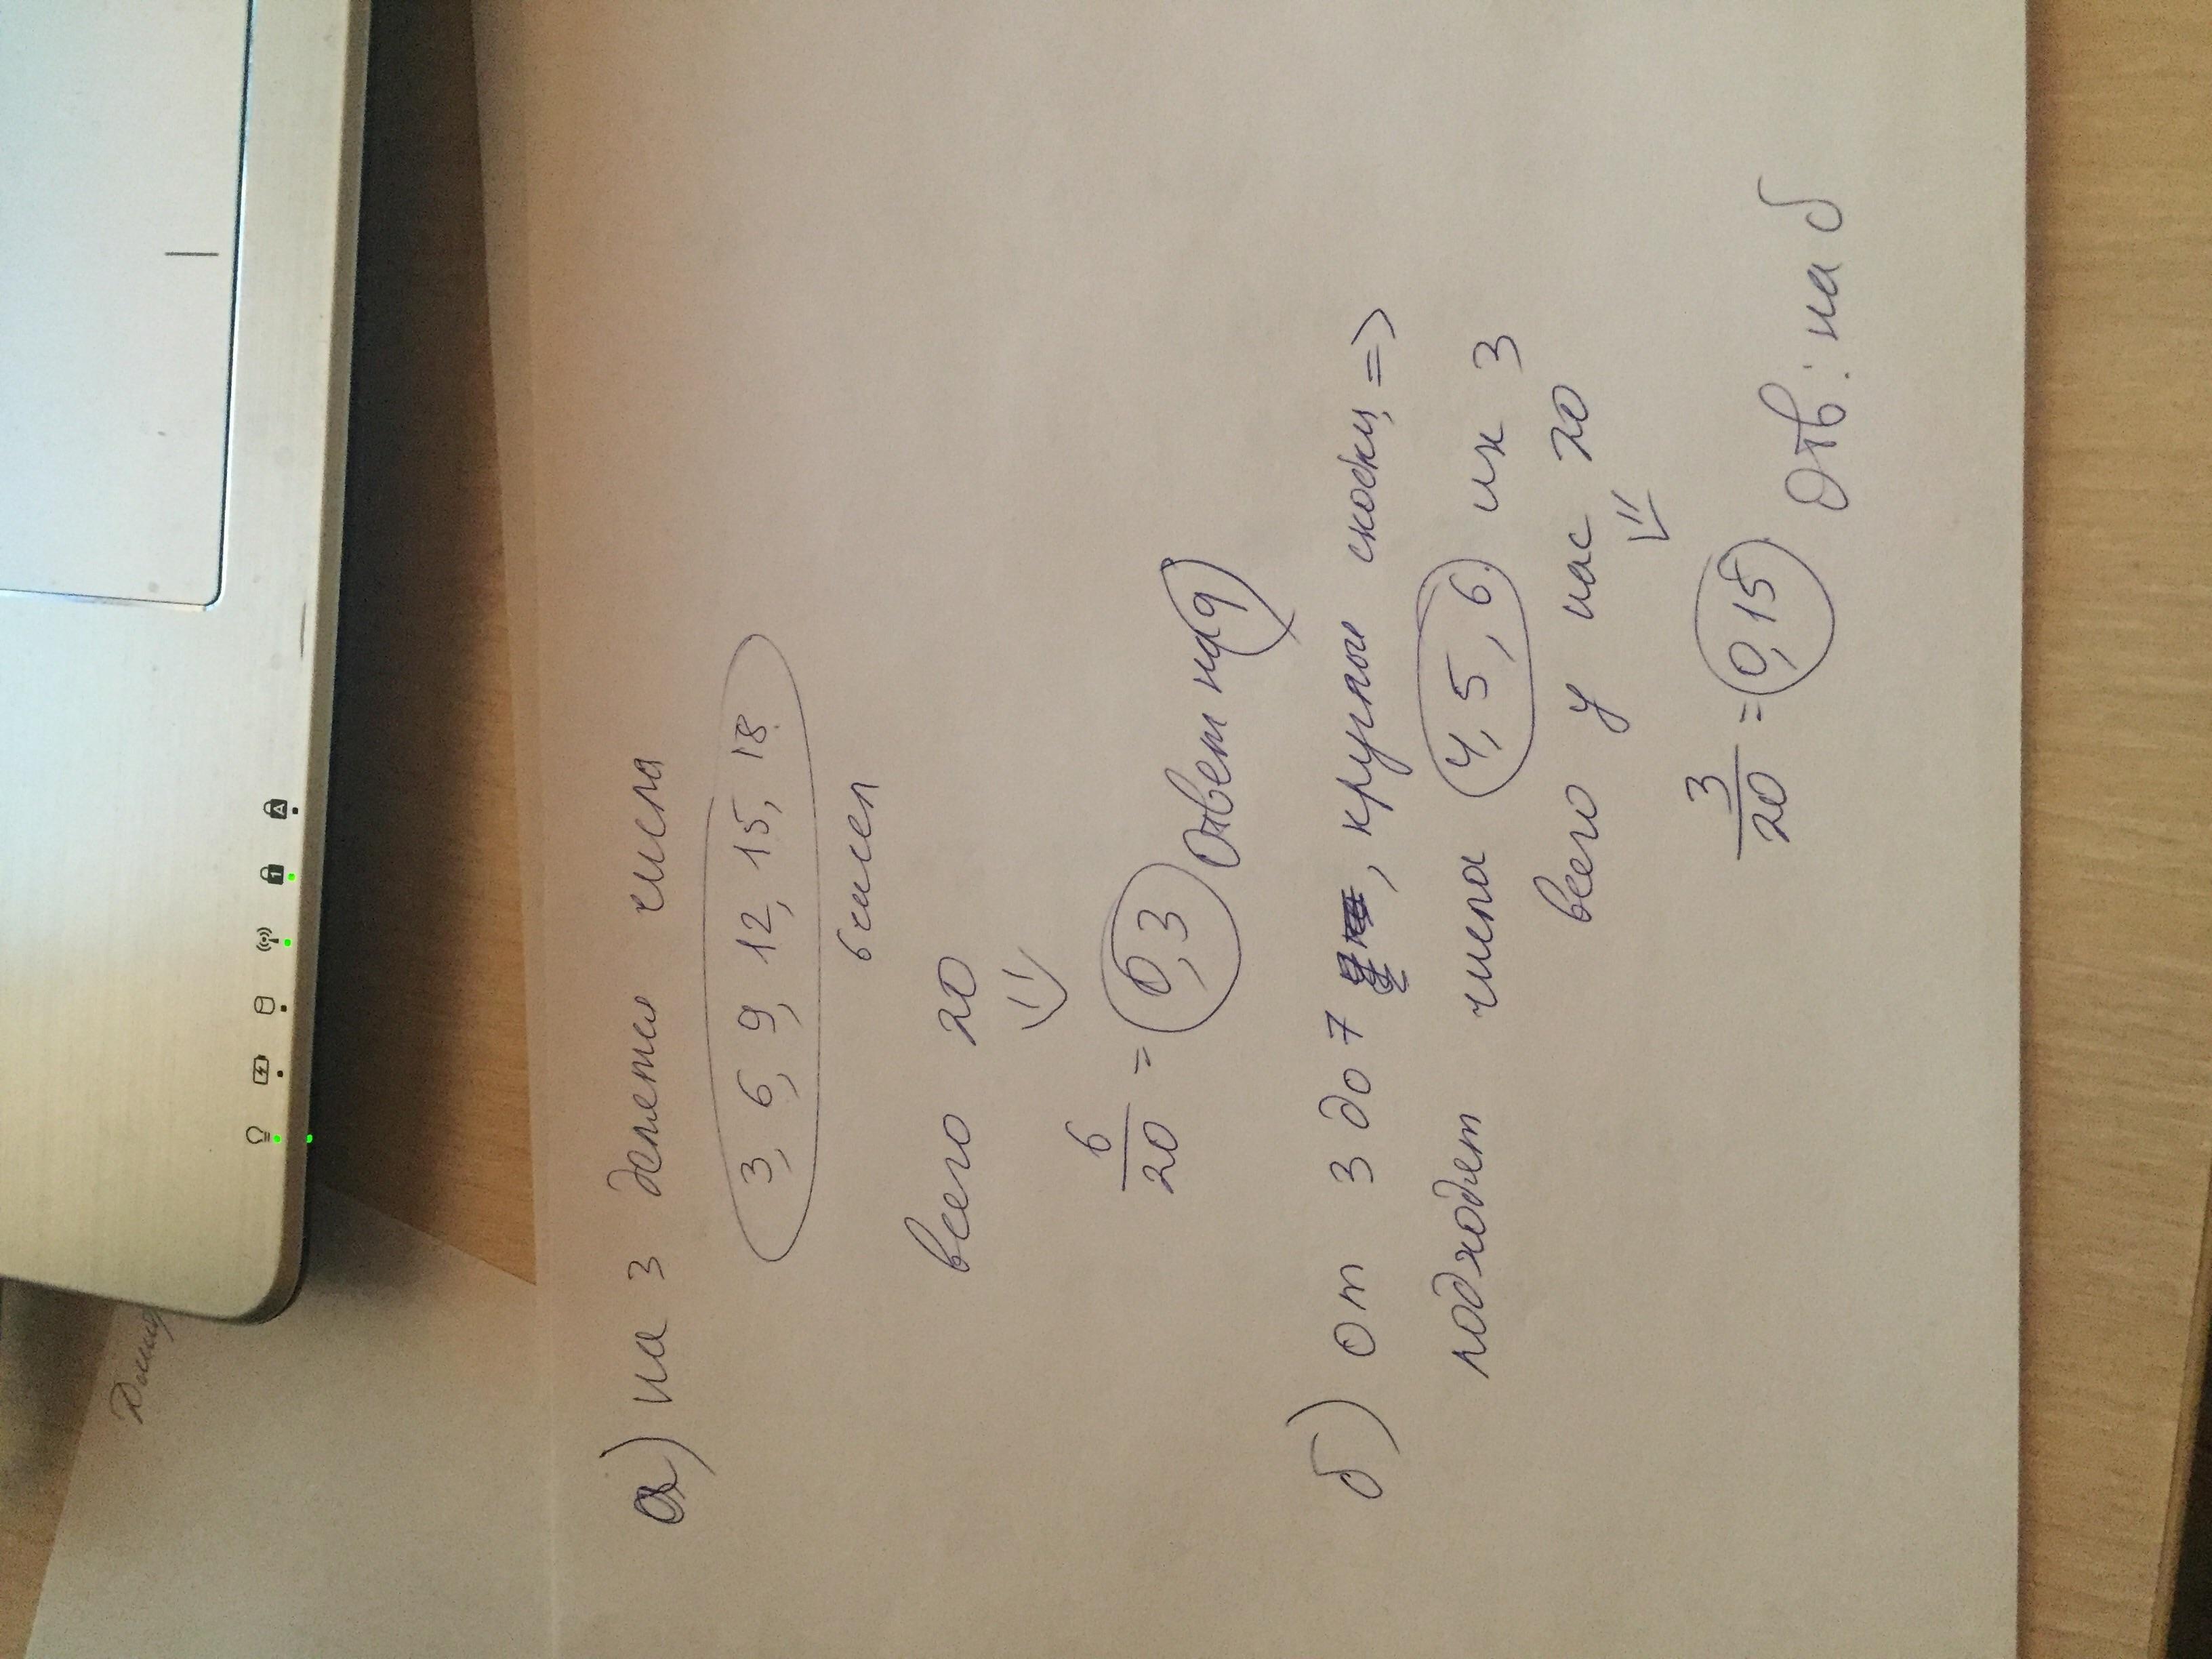 а) на 3 делятся числа
3, 6, 9, 12, 15, 18
6 чисел
всего 20
6/20 = 0,3 Ответ на а)
б) от 3 до 7, круглые скобки, =>
подходят числа 4, 5, 6. их 3
всего у нас 20
=>
3/20 = 0,15 Отв: на б